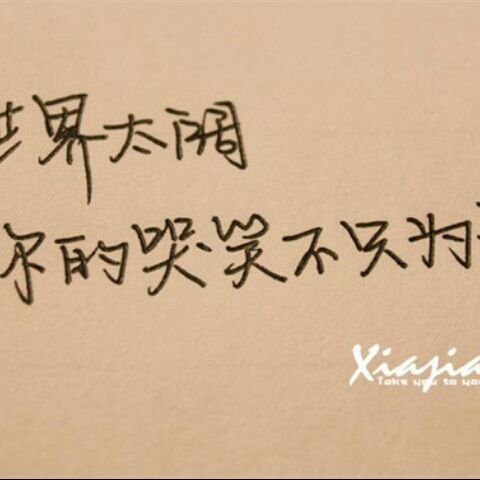 世界太阔
你的哭笑不只为
Xiajia
Take you to you